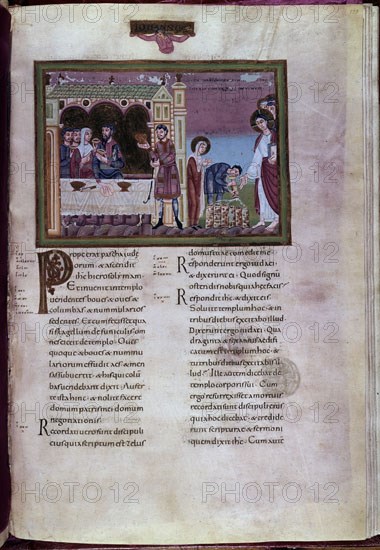 Properat pascha iudę
orum & ascendit
ihs hierosolymam
Et inuenit in templo
uendentes boues & oues &
columbas & nummularios
sedentes. Et cum fecisset qua
si flagellum de funiculis om
nes eiecit de templo. Oues
quoque & boues & nummu
lariorum effudit aes & men
sas subuertit. & his qui colum
bas uendebant dixit. Aufer
te ista hinc & nolite facere
domum patris mei domum
negotiationis.
Recordati uero sunt discipuli
eius quia scriptum est Zelus
domus tuae comedit me.
Responderunt ergo iudaei
& dixerunt ei. Quod signu
ostendis nobis quia haec facis.
Respondit ihs & dixit eis.
Soluite templum hoc & in
tribus diebus excitabo illud.
Dixerunt ergo iudaei. Qua
draginta & sex annis aedifi
catum est templum hoc & tu
tribus diebus excitabis il
lud. Ille autem dicebat de
templo corporis sui. Cum
ergo resurrexisset a mortuis
recordati sunt discipuli eius
quia hoc dicebat & credide
runt scripturae & sermoni
quem dixit ihs. Cum aut
PHOTO 12